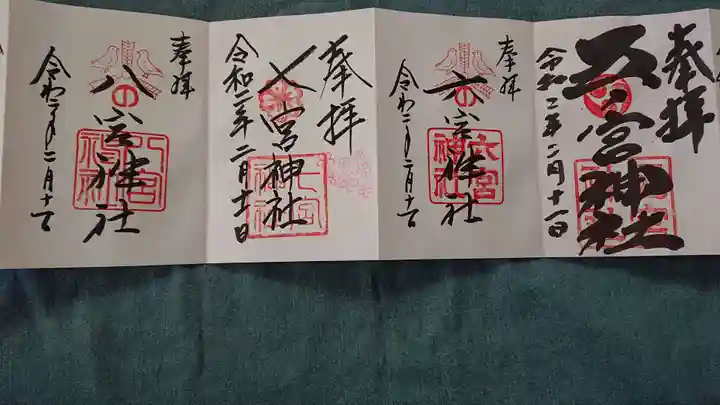 奉拝
五宮神社
令和二年二月十一日
奉拝
六宮神社
令和二年二月十一日
六宮
神社
奉拝
七宮神社
令和二年二月十一日
奉拝
八宮神社
令和二年二月十一日
八宮
神社